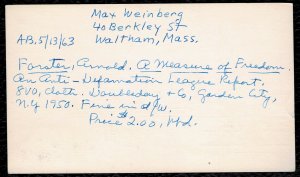 Max Weinberg
40 Berkley St
AB.5/13/63 Waltham, Mass.
Forster, Arnold. A Measure of Freedom.
An Anti-Defamation League Report,
8vo, cloth. Doubleday & Co, Garden City,
N.Y 1950. Fine in d/w.
Price $2.00, Ppd.